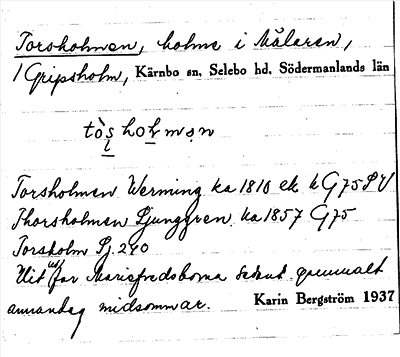 Torsholmen, holme i Mälaren,
/Gripsholm, Kärnbo sn, Selebo hd, Södermanlands län
tòs̩holmən
Torsholmen Werming ka 1810 ek. k G75 SV
Thorsholmen Ljunggren ka 1857 G75
Torsholm Lj. 240
Dit utfar Mariefredsborna sedan gammalt
annandag midsommar. Karin Bergström 1937